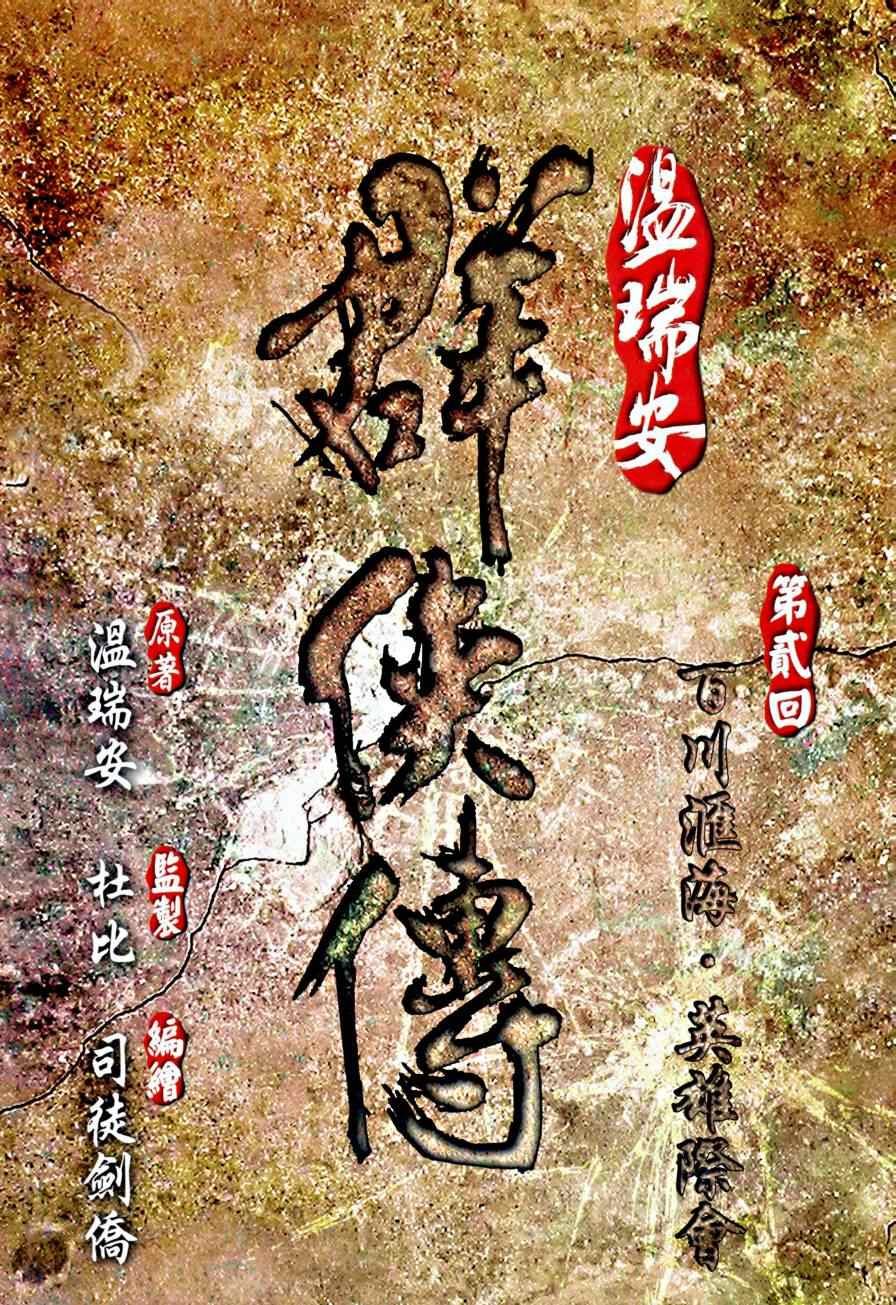 溫瑞安
群俠傳
第貳回
百川滙海·英雄際會
原著
溫瑞安
監製
杜比
編繪
司徒劍僑